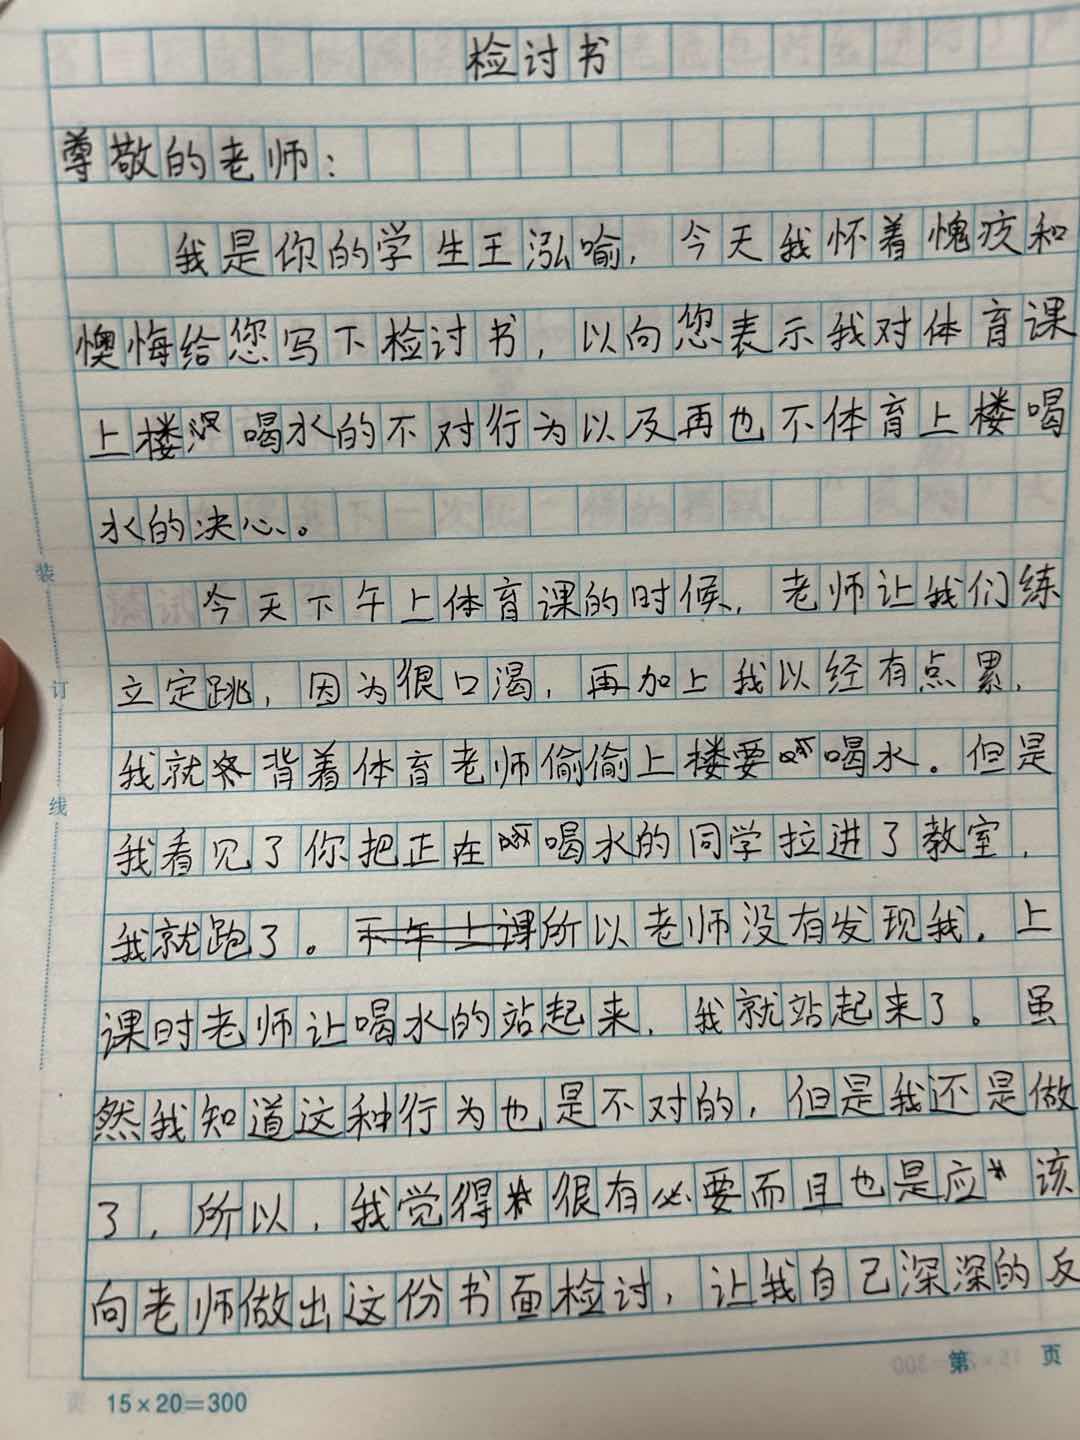 检讨书
尊敬的老师：
我是你的学生王泓喻，今天我怀着愧疚和
懊悔给您写下检讨书，以向您表示我对体育课
上楼喝水的不对行为以及再也不体育上楼喝
水的决心。
今天下午上体育课的时候，老师让我们练
立定跳，因为很口渴，再加上我以经有点累，
我就背着体育老师偷偷上楼要喝水。但是
我看见了你把正在喝水的同学拉进了教室，
我就跑了。下午上课所以老师没有发现我。上
课时老师让喝水的站起来，我就站起来了。虽
然我知道这种行为也是不对的，但是我还是做
了，所以，我觉得很有必要而且也是应该
向老师做出这份书面检讨，让我自己深深的反
装
订
线
15×20=300
第 页